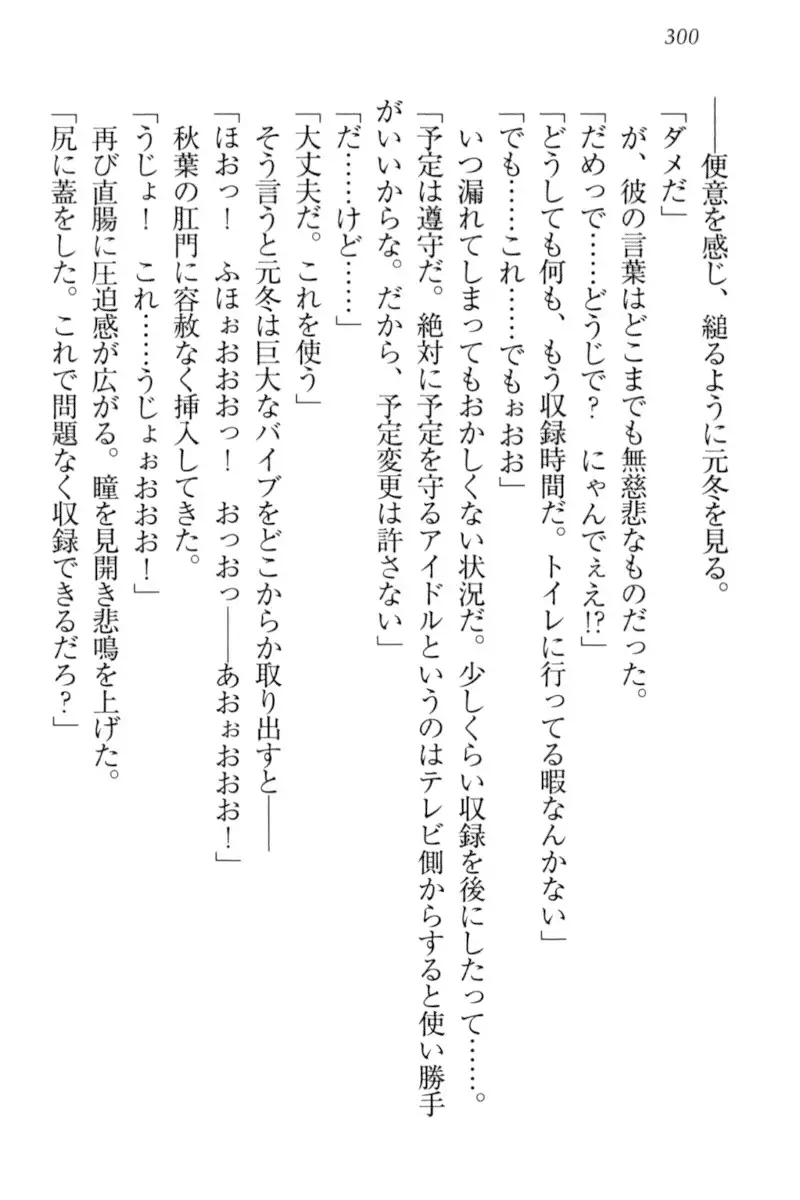 300
――便意を感じ、縋るように元冬を見る。
「ダメだ」
が、彼の言葉はどこまでも無慈悲なものだった。
「だめっで……どうじで？　にゃんでぇえ!?」
「どうしても何も、もう収録時間だ。トイレに行ってる暇なんかない」
「でも……これ……でもぉおお」
いつ漏れてしまってもおかしくない状況だ。少しくらい収録を後にしたって……。
「予定は遵守だ。絶対に予定を守るアイドルというのはテレビ側からすると使い勝手
がいいからな。だから、予定変更は許さない」
「だ……けど……」
「大丈夫だ。これを使う」
そう言うと元冬は巨大なバイブをどこからか取り出すと――
「ほおっ！　ふほぉおおおっ！　おっおっ――あおぉおおお！」
秋葉の肛門に容赦なく挿入してきた。
「うじょ！　これ……うじょぉおおお！」
再び直腸に圧迫感が広がる。瞳を見開き悲鳴を上げた。
「尻に蓋をした。これで問題なく収録できるだろ？」